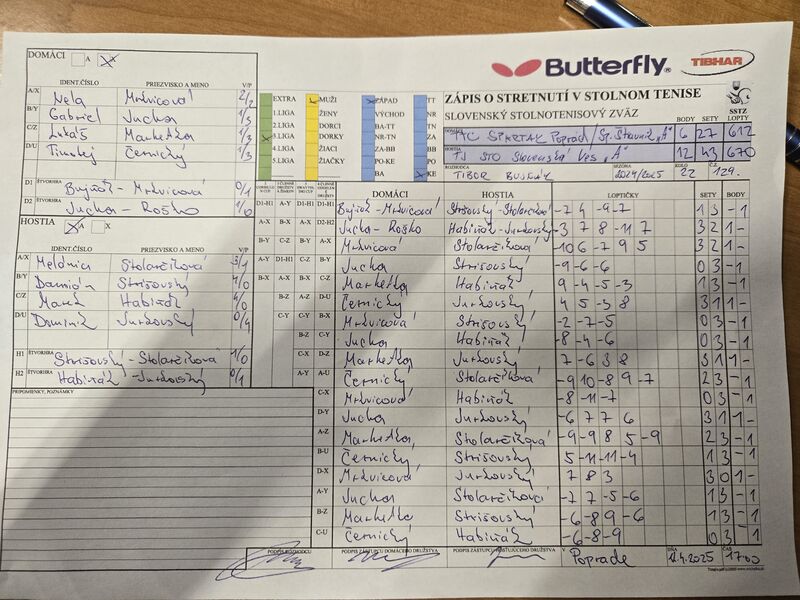 DOMÁCI A X
IDENT.ČÍSLO PRIEZVISKO A MENO V/P
A/X Nela Mrkvicová 2/2
B/Y Gabriel Jucha 1/3
C/Z Lukáš Marhefka 1/3
D/U Timotej Černický 1/3
D1 ŠTVORHRA Bujňák - Mrkvicová 0/1
D2 ŠTVORHRA Jucha - Roško 1/0
HOSTIA A X
IDENT.ČÍSLO PRIEZVISKO A MENO V/P
A/X Melánia Stolarčíková 3/1
B/Y Damián Strišovský 4/0
C/Z Marek Habiňák 4/0
D/U Dominik Jurkovský 0/4
H1 ŠTVORHRA Strišovský - Stolarčíková 1/0
H2 ŠTVORHRA Habiňák - Jurkovský 0/1
PRIPOMIENKY, POZNÁMKY
EXTRA
1.LIGA
2.LIGA
3.LIGA
4.LIGA
5.LIGA
MUŽI
ŽENY
DORCI
DORKY
ŽIACI
ŽIAČKY
ZÁPAD TT
VÝCHOD NR
BA-TT TN
NR-TN ZA
ZA-BB BB
PO-KE PO
BA KE
Butterfly
TIBHAR
ZÁPIS O STRETNUTÍ V STOLNOM TENISE
SLOVENSKÝ STOLNOTENISOVÝ ZVÄZ
SSTZ
BODY SETY LOPTY
MŠK SPARTAK Poprad / Sp. Štiavnik "A" 6 27 612
HOSTIA TJ STO Slovenská Ves "A" 12 43 670
ROZHODCA TIBOR SEZÓNA 2024/2025 KOLO 22 Č.Z. 129.
DOMÁCI HOSTIA LOPTIČKY SETY BODY
D1-H1 Bujňák-Mrkvicová Strišovský-Stolarčíková -7 4 -9 -7 1 3 - 1
D2-H2 Jucha - Roško Habiňák-Jurkovský -3 7 8 -11 7 3 2 1 -
Mrkvicová Stolarčíková 10 6 -7 9 5 3 2 1 -
Jucha Strišovský -9 -6 -6 0 3 - 1
Marhefka Habiňák 9 -4 -5 -3 1 3 - 1
Černický Jurkovský 4 5 -3 8 3 1 1 -
Mrkvicová Strišovský -2 -7 -5 0 3 - 1
Jucha Habiňák -8 -4 -6 0 3 - 1
Marhefka Jurkovský 7 -6 3 8 3 1 1 -
Černický Stolarčíková -9 10 -8 9 -7 2 3 - 1
Mrkvicová Habiňák -8 -11 -7 0 3 - 1
Jucha Jurkovský -6 7 7 6 3 1 1 -
Marhefka Stolarčíková -9 -9 8 5 -9 2 3 - 1
Černický Strišovský 5 -11 -11 -4 1 3 - 1
Mrkvicová Jurkovský 7 8 3 3 0 1 -
Jucha Stolarčíková -7 7 -5 -6 1 3 - 1
Marhefka Strišovský -6 -8 9 -6 1 3 - 1
Černický Habiňák -6 -8 -9 0 3 - 1
PODPIS ROZHODCU PODPIS ZÁSTUPCU DOMÁCEHO DRUŽSTVA PODPIS ZÁSTUPCU HOSŤUJÚCEHO DRUŽSTVA V Poprade DŇA 12.4.2025 ČAS 17:00